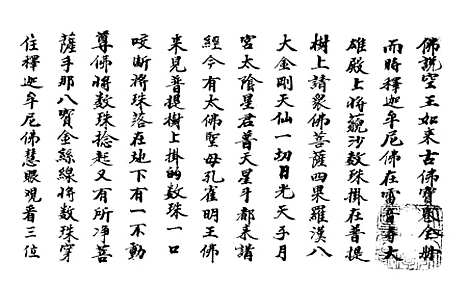 佛說空王如來古佛寶圖全冊
而時釋迦牟尼佛在雷音寺大
雄殿上將𧆌沙数珠掛在菩提
樹上請衆佛菩薩四果羅漢八
大金剛天仙一切日光天子月
宮太陰星君普天星斗都来譜
經今有太佛聖母孔雀明王佛
来見菩提樹上掛的数珠一口
咬断将珠落在地下有一不動
尊佛将数珠捻起又有所净菩
薩手那八寳金絲線将数珠穿
住釋迦牟尼佛慧眼观看三位